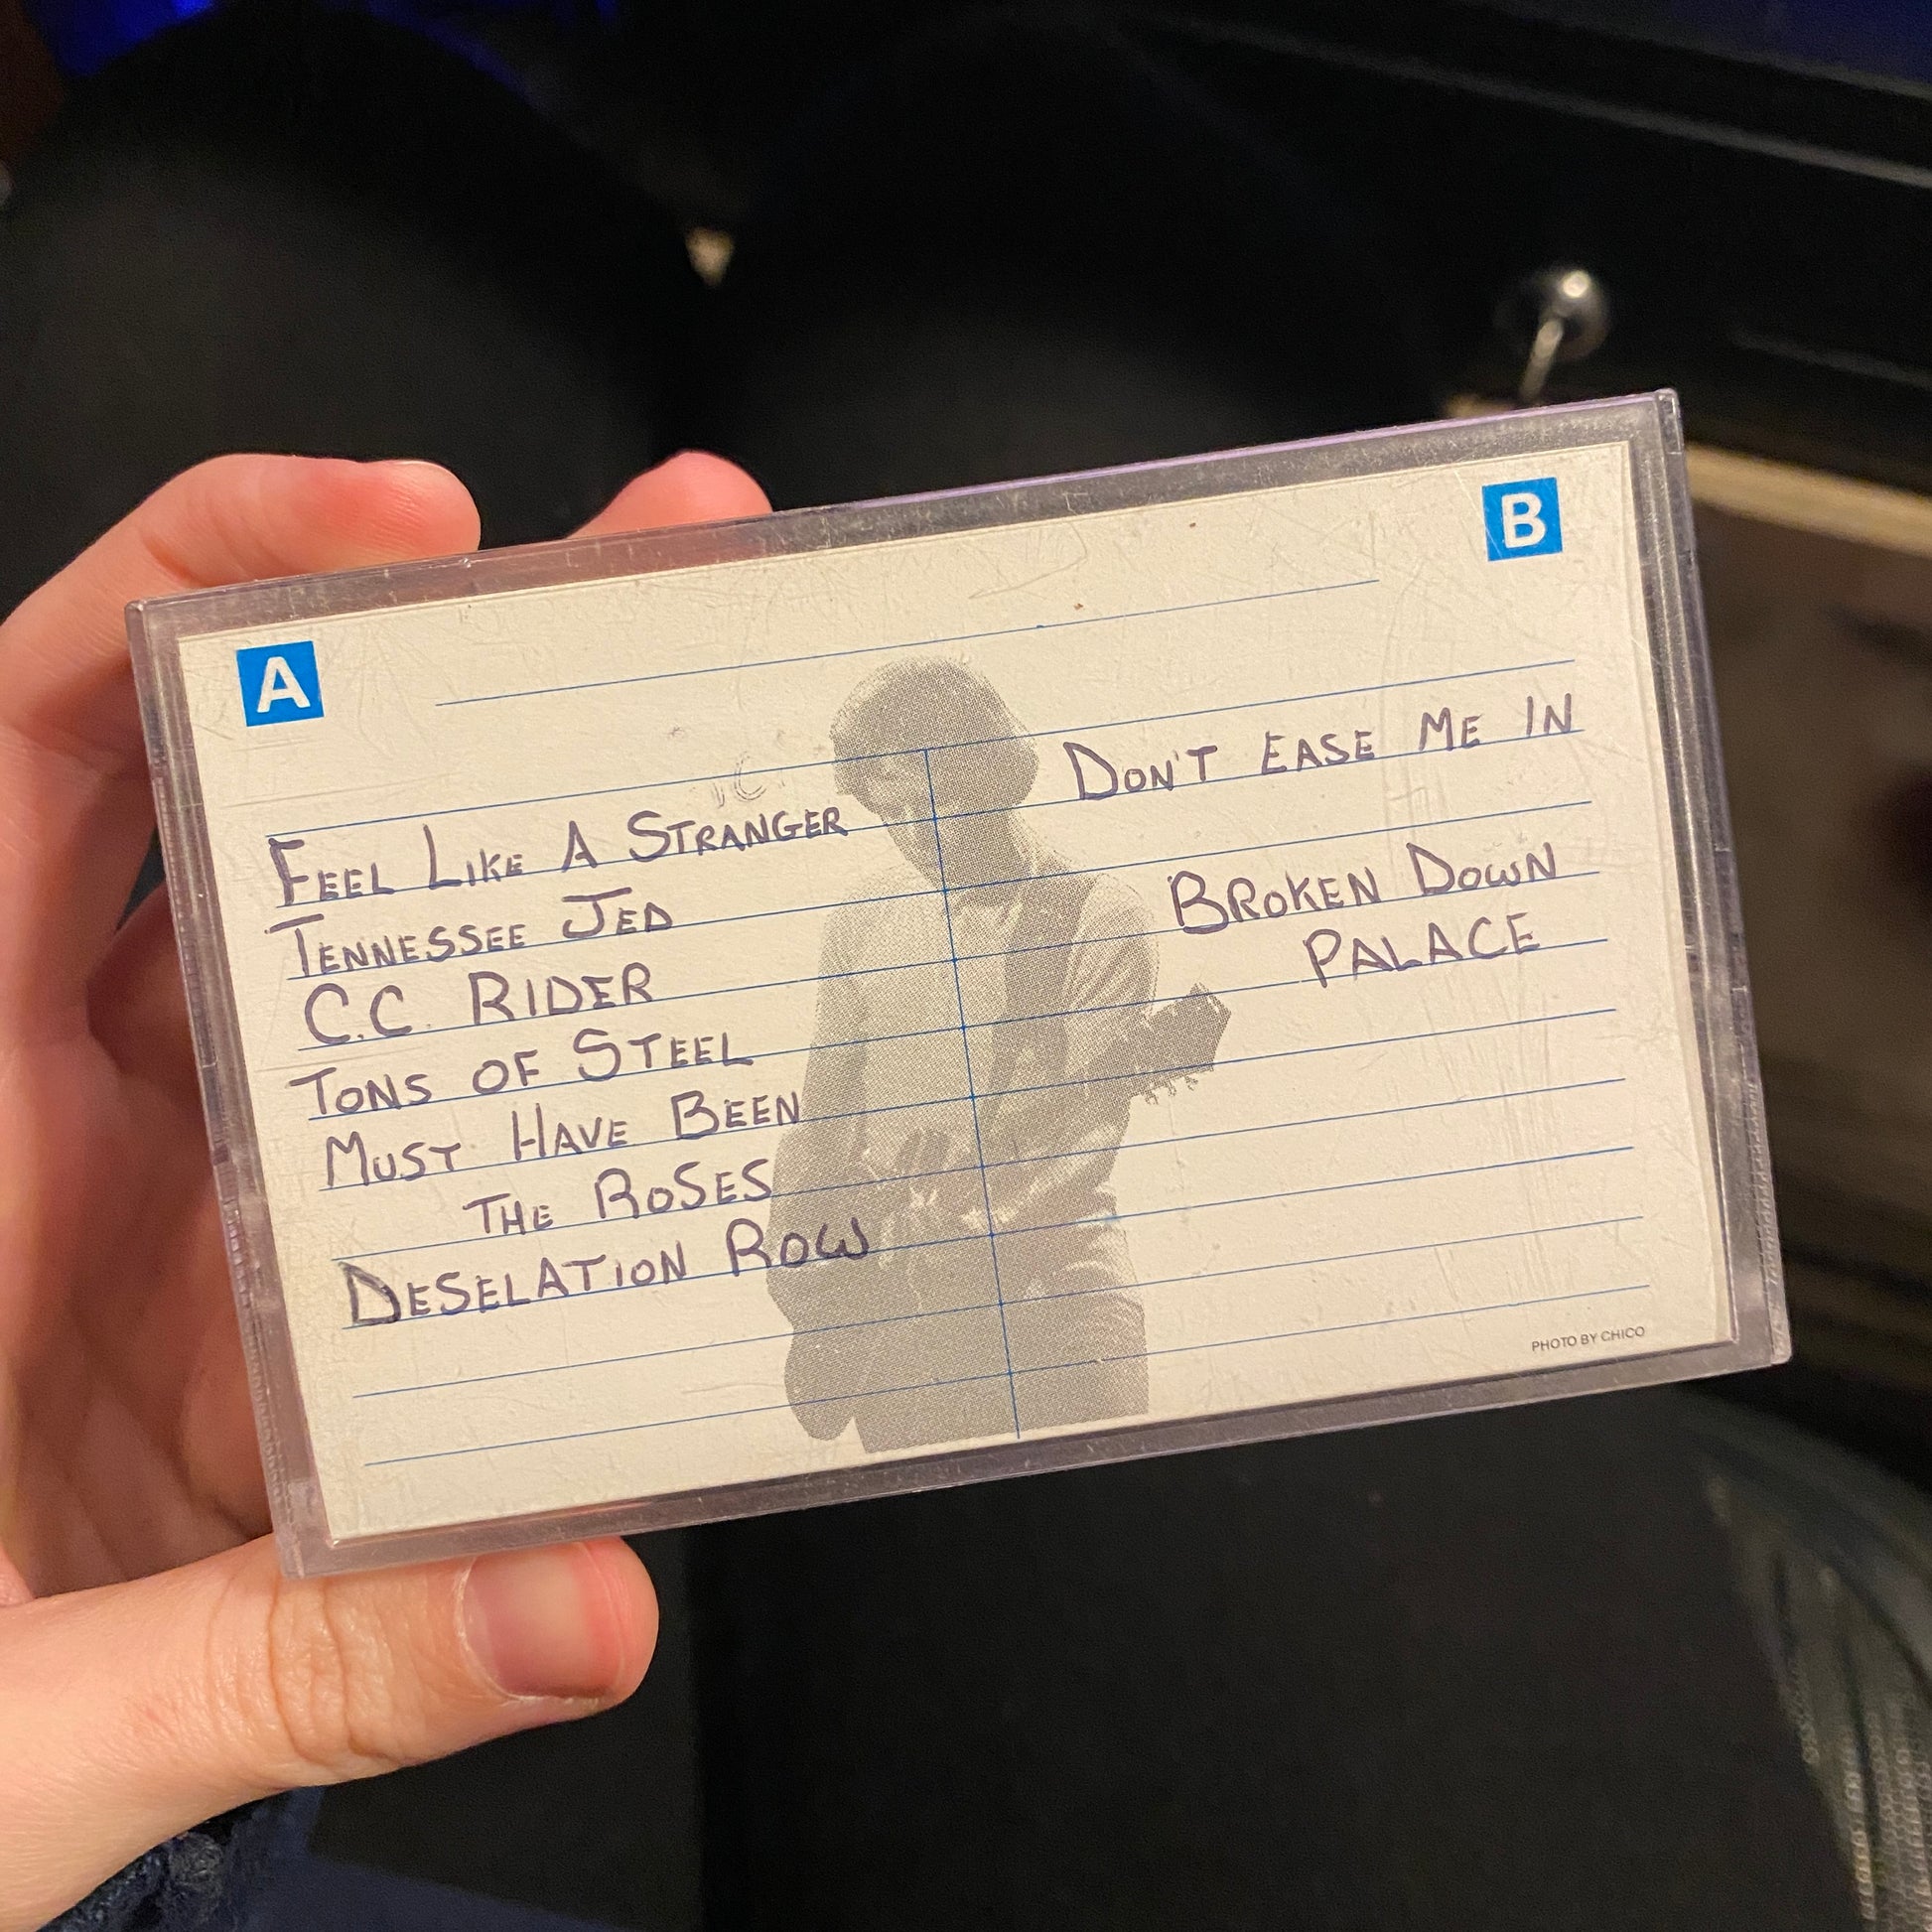 A
FEEL LIKE A STRANGER
TENNESSEE JED
C.C. RIDER
TONS OF STEEL
MUST HAVE BEEN
THE ROSES
DESELATION ROW
B
DON'T EASE ME IN
BROKEN DOWN
PALACE
PHOTO BY CHICO